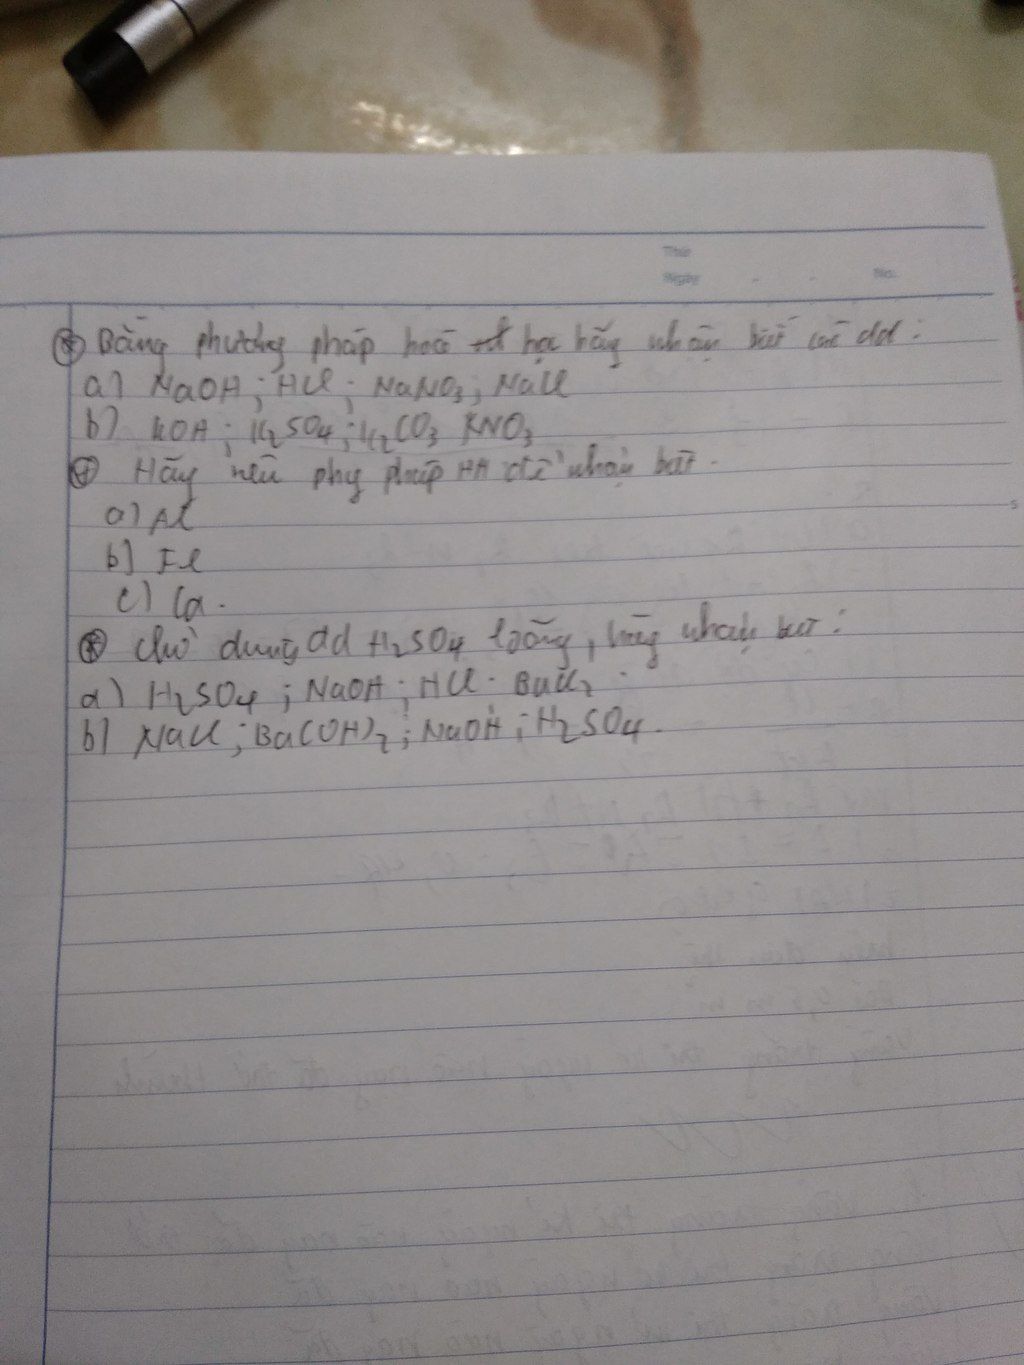 Thứ
Ngày - - No.
⊛ Bằng phương pháp hoá học hãy nhận biết các dd :
a) NaOH ; HCl ; NaNO3 ; NaCl
b) KOH ; K2SO4 ; K2CO3 KNO3
⊕ Hãy nêu phg pháp HH để nhận biết .
a) Al
b) Fe
c) Ca .
⊛ Chỉ dùng dd H2SO4 loãng , hãy nhận biết :
a) H2SO4 ; NaOH ; HCl . BaCl2 .
b) NaCl ; Ba(OH)2 ; NaOH ; H2SO4 .